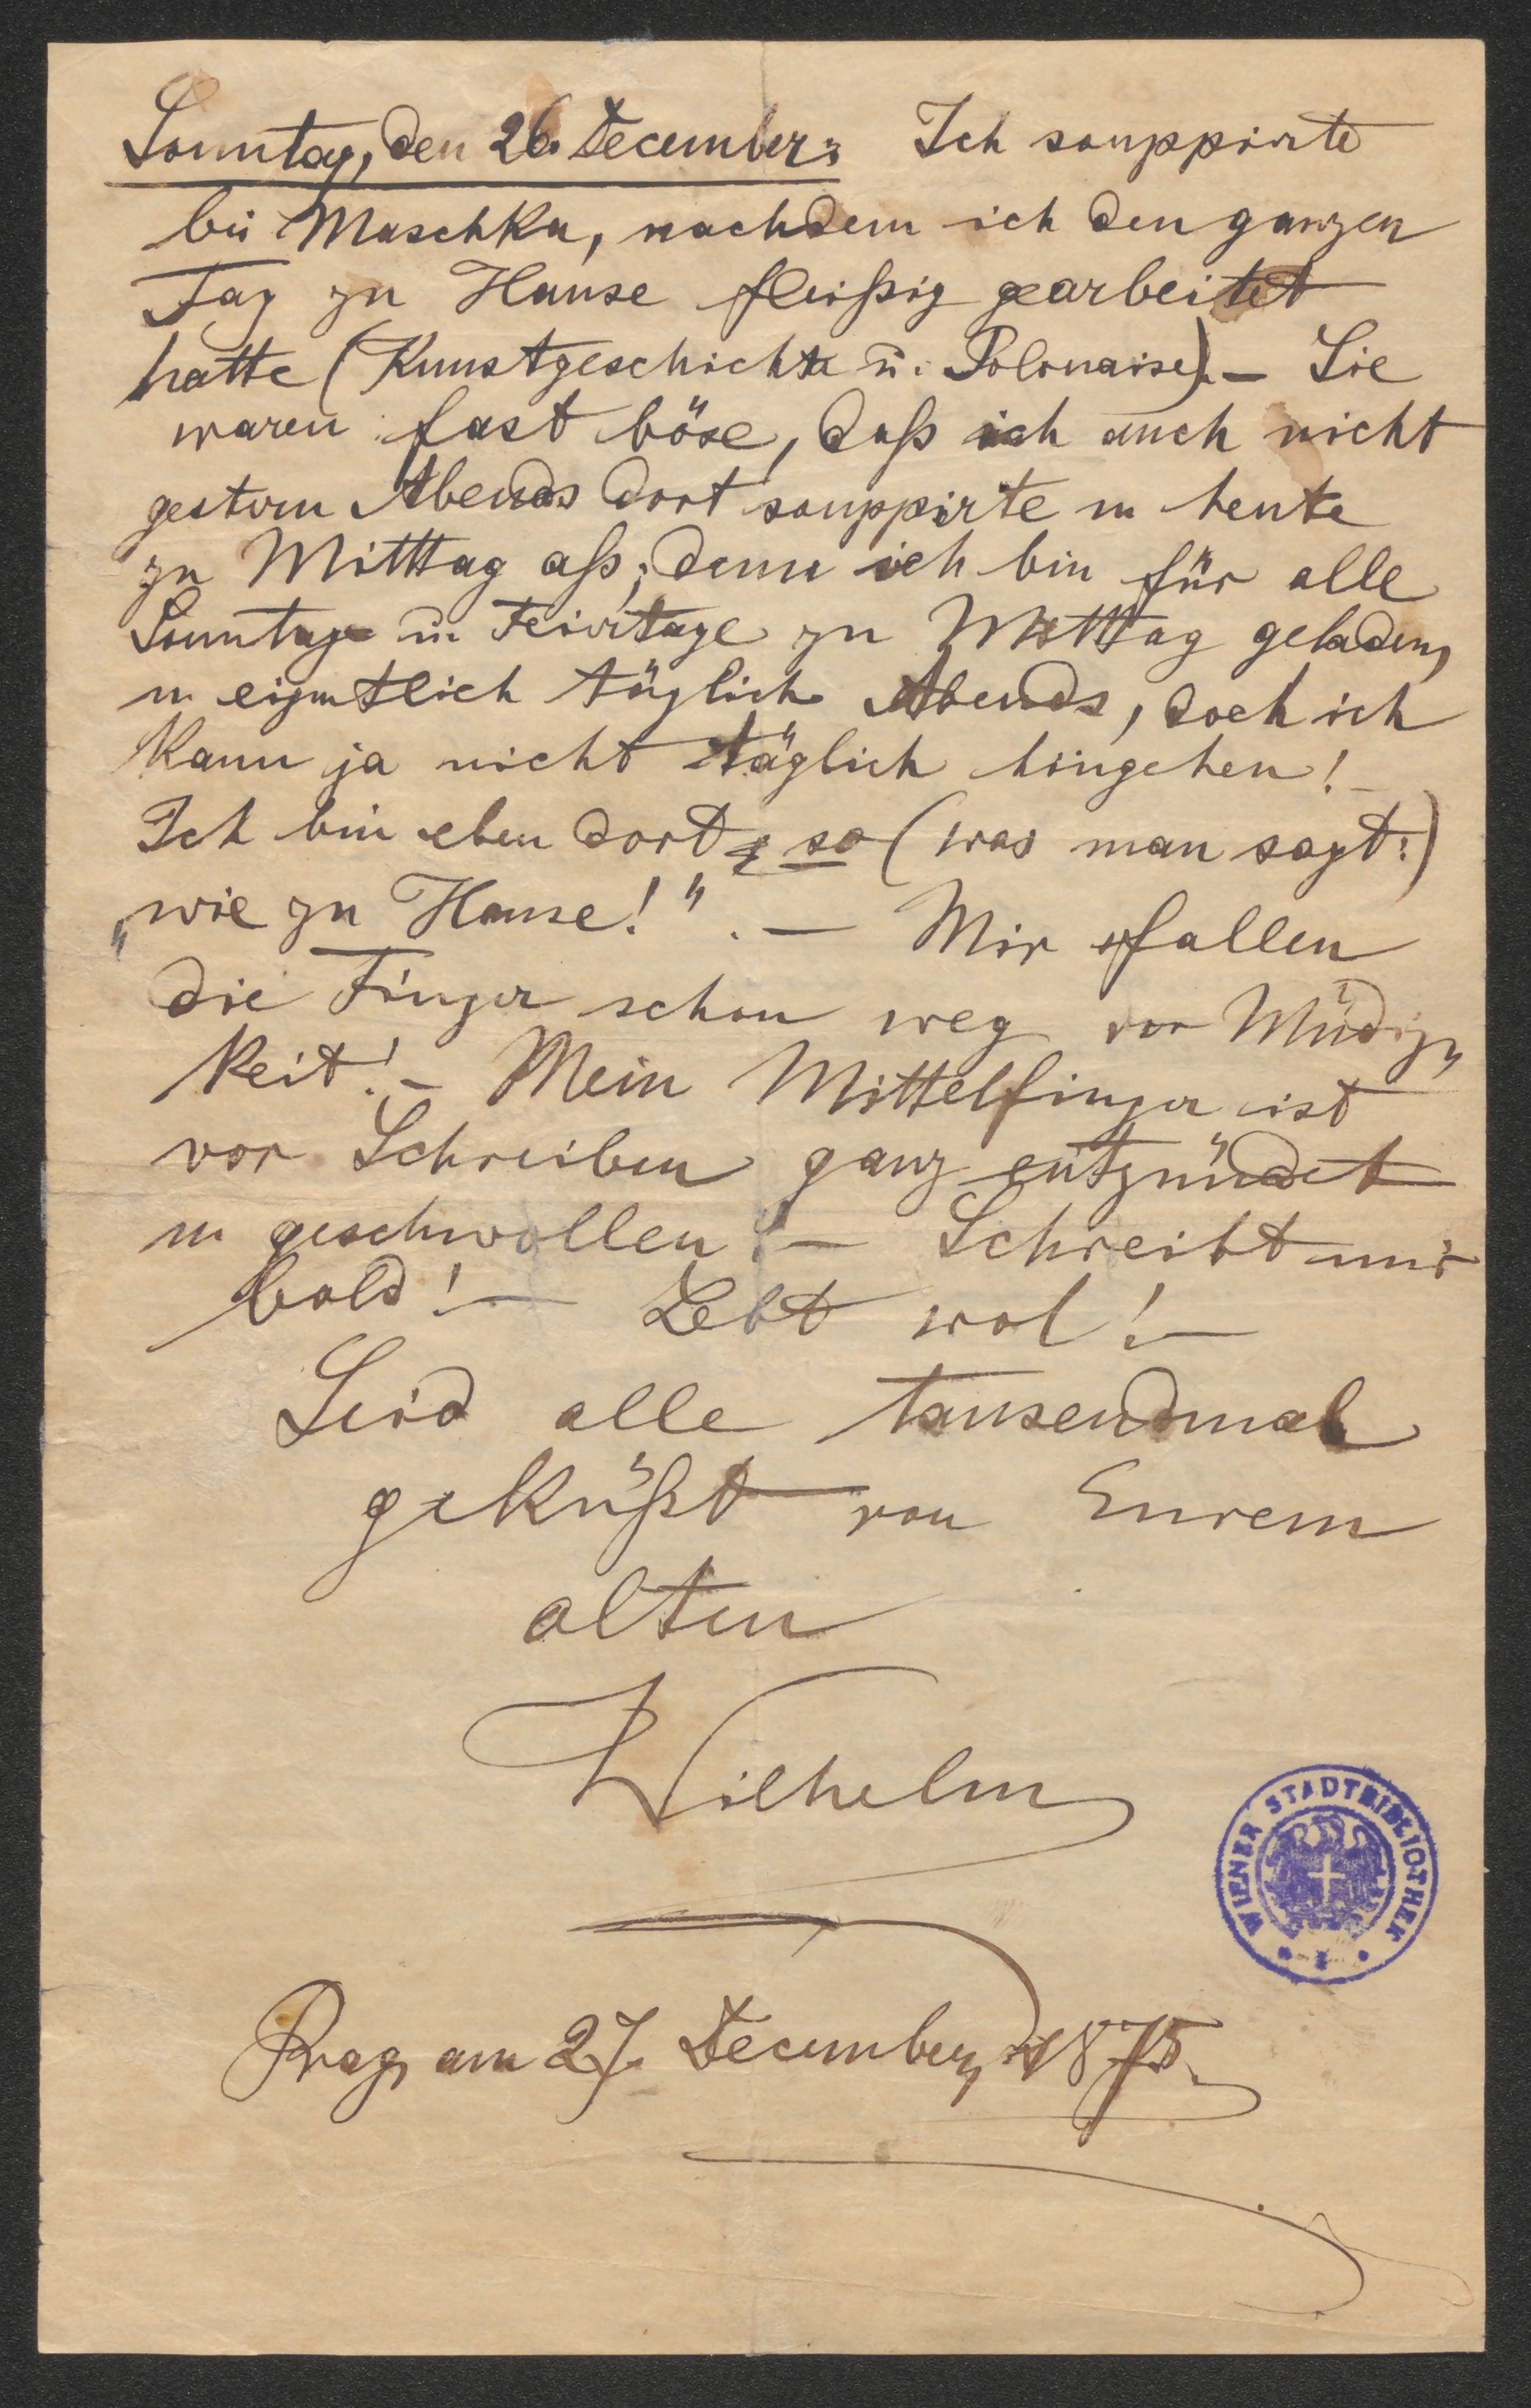 Sonntag, den 26. December: Ich souppirte
bei Maschka, nachdem ich den ganzen
Tag zu Hause fleißig gearbeitet
hatte (Kunstgeschichte u. Polonaise). – Sie
waren fast böse, daß ich auch nicht
gestern Abends dort souppirte u heute
zu Mitttag aß; denn ich bin für alle
Sonntage u. Feiertage zu Mitttag geladen,
u eigentlich täglich Abends, doch ich
kann ja nicht täglich hingehen! –
Ich bin eben dort so (was man sagt:)
„wie zu Hause!". – Mir fallen
die Finger schon weg vor Müdig„
keit! – Mein Mittelfinger ist
vor Schreiben ganz entzündet
u geschwollen! – Schreibt mir
bald! – Lebt wol! –
Seid alle tausendmal
geküßt von Eurem
alten
Wilhelm
WIENER STADTBIBLIOTHEK
Prag, am 27. December 1875.